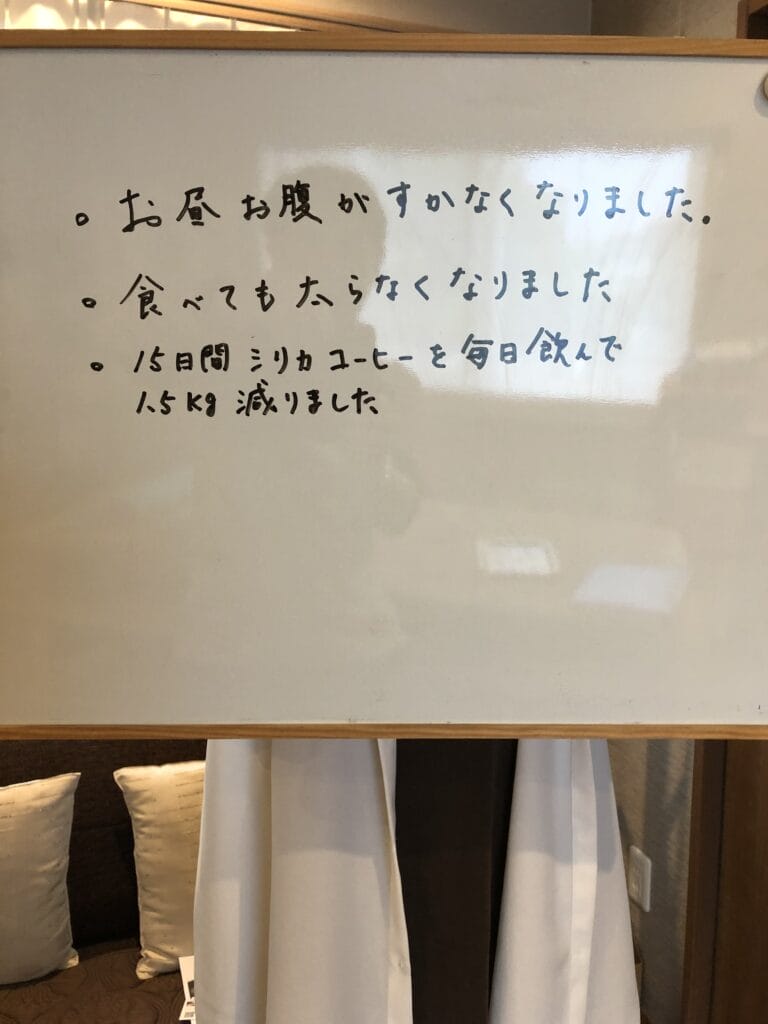 。お昼お腹がすかなくなりました。
。食べても太らなくなりました
。15日間シリカコーヒーを毎日飲んで
1.5kg減りました